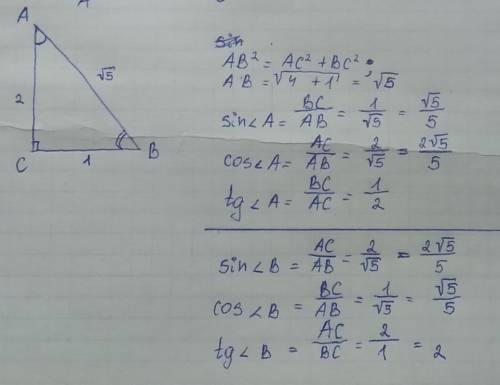 A
√5
2
C
1
B
sin
AB² = AC² + BC²;
AB = √4 + 1 = √5
sin∠A = BC/AB = 1/√5 = √5/5
cos∠A = AC/AB = 2/√5 = 2√5/5
tg∠A = BC/AC = 1/2
sin∠B = AC/AB = 2/√5 = 2√5/5
cos∠B = BC/AB = 1/√5 = √5/5
tg∠B = AC/BC = 2/1 = 2